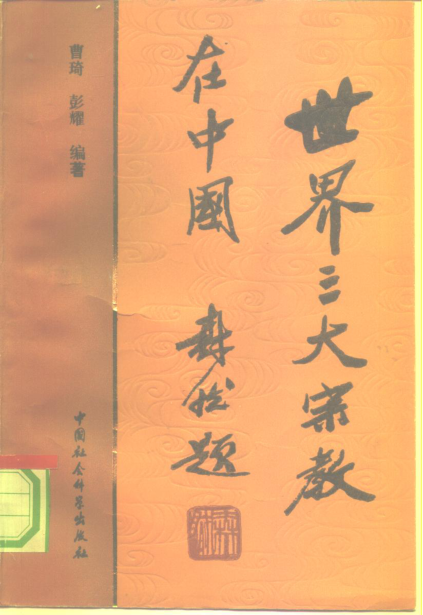 世界三大宗教
在中国
题
曹琦 彭耀 编著
中国社会科学出版社